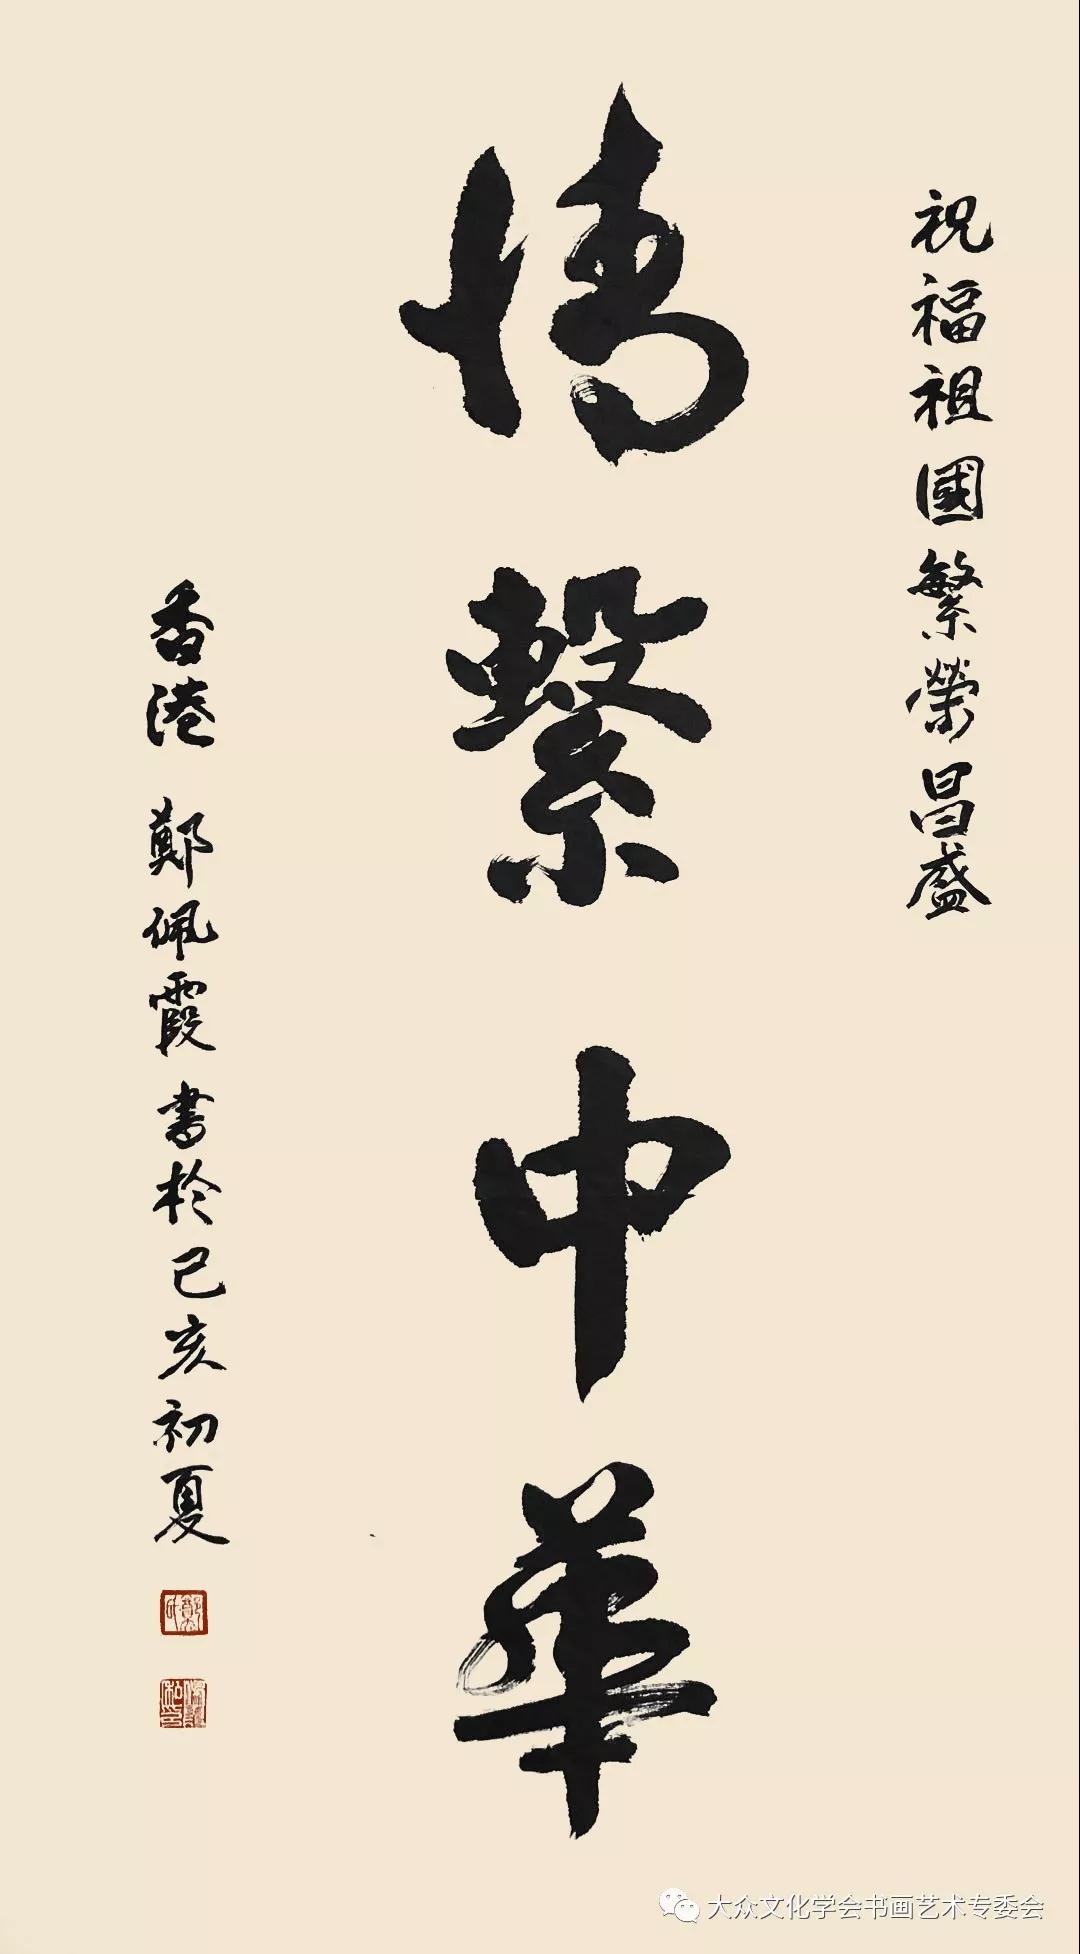 祝福祖國繁榮昌盛
情繫中華
香港 鄭佩霞書於己亥初夏
大众文化学会书画艺术专委会